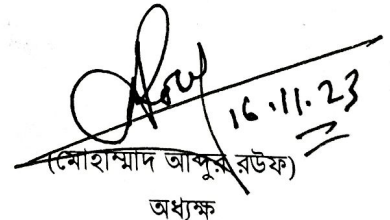 16.11.23
(মোহাম্মাদ আব্দুর রউফ)
অধ্যক্ষ